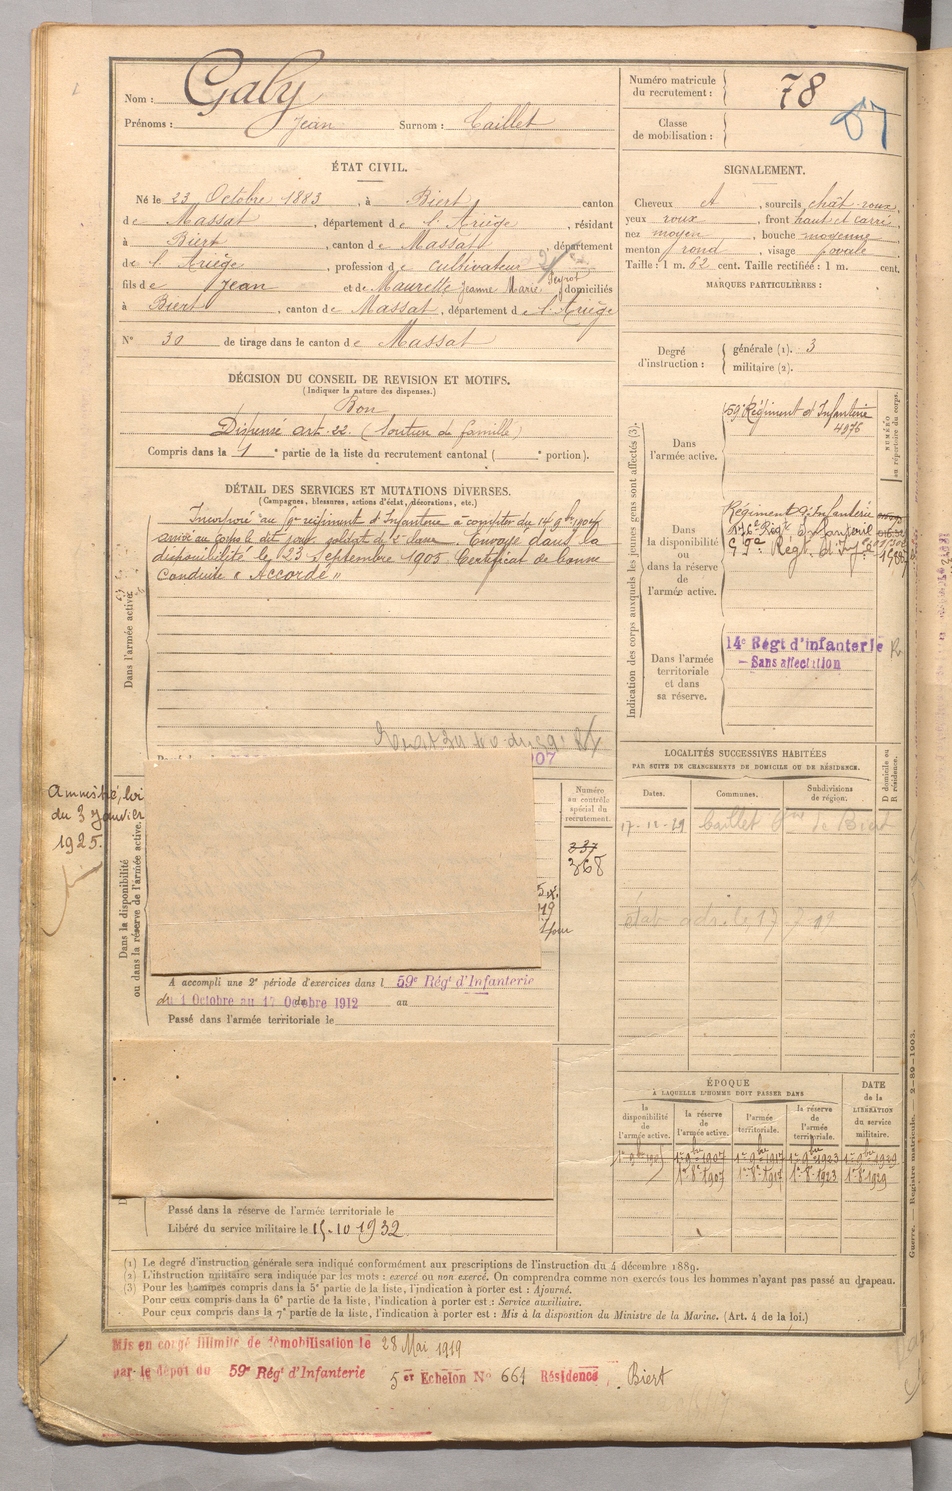 Nom : Galy
Prénoms : Jean Surnom : Caillet
ÉTAT CIVIL.
Né le 23 Octobre 1883, à Biert canton
de Massat, département de l'Ariège, résidant
à Biert, canton de Massat, département
de l'Ariège, profession de cultivateur
fils de Jean et de Maurette Jeanne Marie Peyrot domiciliés
à Biert, canton de Massat, département de l'Ariège
N° 30 de tirage dans le canton de Massat
DÉCISION DU CONSEIL DE REVISION ET MOTIFS.
(Indiquer la nature des dispenses.)
Bon
Dispensé art. 22. (Soutien de famille)
Compris dans la 1e partie de la liste du recrutement cantonal ( e portion).
DÉTAIL DES SERVICES ET MUTATIONS DIVERSES.
(Campagnes, blessures, actions d'éclat, décorations, etc.)
Incorporé au 59e régiment d'Infanterie à compter du 14 9bre 1904
arrivé au corps le dit jour. soldat de 2e classe. Envoyé dans la
disponibilité le 23 Septembre 1905 Certificat de bonne
Conduite « Accordé »
Dans l'armée active.
907
Amnistié, loi
du 3 Janvier
1925.
Dans la disponibilité
ou dans la réserve de l'armée active.
Numéro
au contrôle
spécial du
recrutement.
337
368
A accompli une 2e période d'exercices dans l 59e Régt d'Infanterie
du 1 Octobre au 17 Octobre 1912 au
Passé dans l'armée territoriale le
Passé dans la réserve de l'armée territoriale le
Libéré du service militaire le 15-10 1932
Numéro matricule
du recrutement : 78
Classe
de mobilisation :
SIGNALEMENT.
Cheveux , sourcils chât-roux,
yeux roux, front haut et carré
nez moyen, bouche moyenne
menton rond, visage ovale
Taille : 1 m. 62 cent. Taille rectifiée : 1 m. cent.
MARQUES PARTICULIÈRES :
Degré
d'instruction :
générale (1). 3
militaire (2).
Indication des corps auxquels les jeunes gens sont affectés (3).
NUMÉRO
au répertoire du corps.
Dans
l'armée active.
59e Régiment d'Infanterie
4976
Dans
la disponibilité
ou dans la réserve
de
l'armée active.
Régiment d'Infanterie
Dans l'armée
territoriale
et dans
sa réserve.
14e Régt d'infanterie
– Sans affectation
LOCALITÉS SUCCESSIVES HABITÉES
PAR SUITE DE CHANGEMENTS DE DOMICILE OU DE RÉSIDENCE.
D domicile ou
R résidence.
Dates. Communes. Subdivisions
de région.
Caillet Cne de Biert
ÉPOQUE
À LAQUELLE L'HOMME DOIT PASSER DANS
la
disponibilité
de
l'armée active.
la réserve
de
l'armée active.
l'armée
territoriale.
la réserve
de
l'armée
territoriale.
DATE
de la
LIBÉRATION
du service
militaire.
1er 9bre 1907 1er 9bre 1917 1er 9bre 1923 1er 9bre 1929
1er 8e 1907 1er 8e 1917 1er 8e 1923 1er 8e 1929
Guerre. — Registre matricule. 2-89-1903.
(1) Le degré d'instruction générale sera indiqué conformément aux prescriptions de l'instruction du 4 décembre 1889.
(2) L'instruction militaire sera indiquée par les mots : exercé ou non exercé. On comprendra comme non exercés tous les hommes n'ayant pas passé au drapeau.
(3) Pour les hommes compris dans la 5e partie de la liste, l'indication à porter est : Ajourné.
Pour ceux compris dans la 6e partie de la liste, l'indication à porter est : Service auxiliaire.
Pour ceux compris dans la 7e partie de la liste, l'indication à porter est : Mis à la disposition du Ministre de la Marine. (Art. 4 de la loi.)
Mis en congé illimité de démobilisation le 28 Mai 1919
par le dépôt du 59e Régt d'Infanterie 5e Echelon N° 661 Résidence Biert